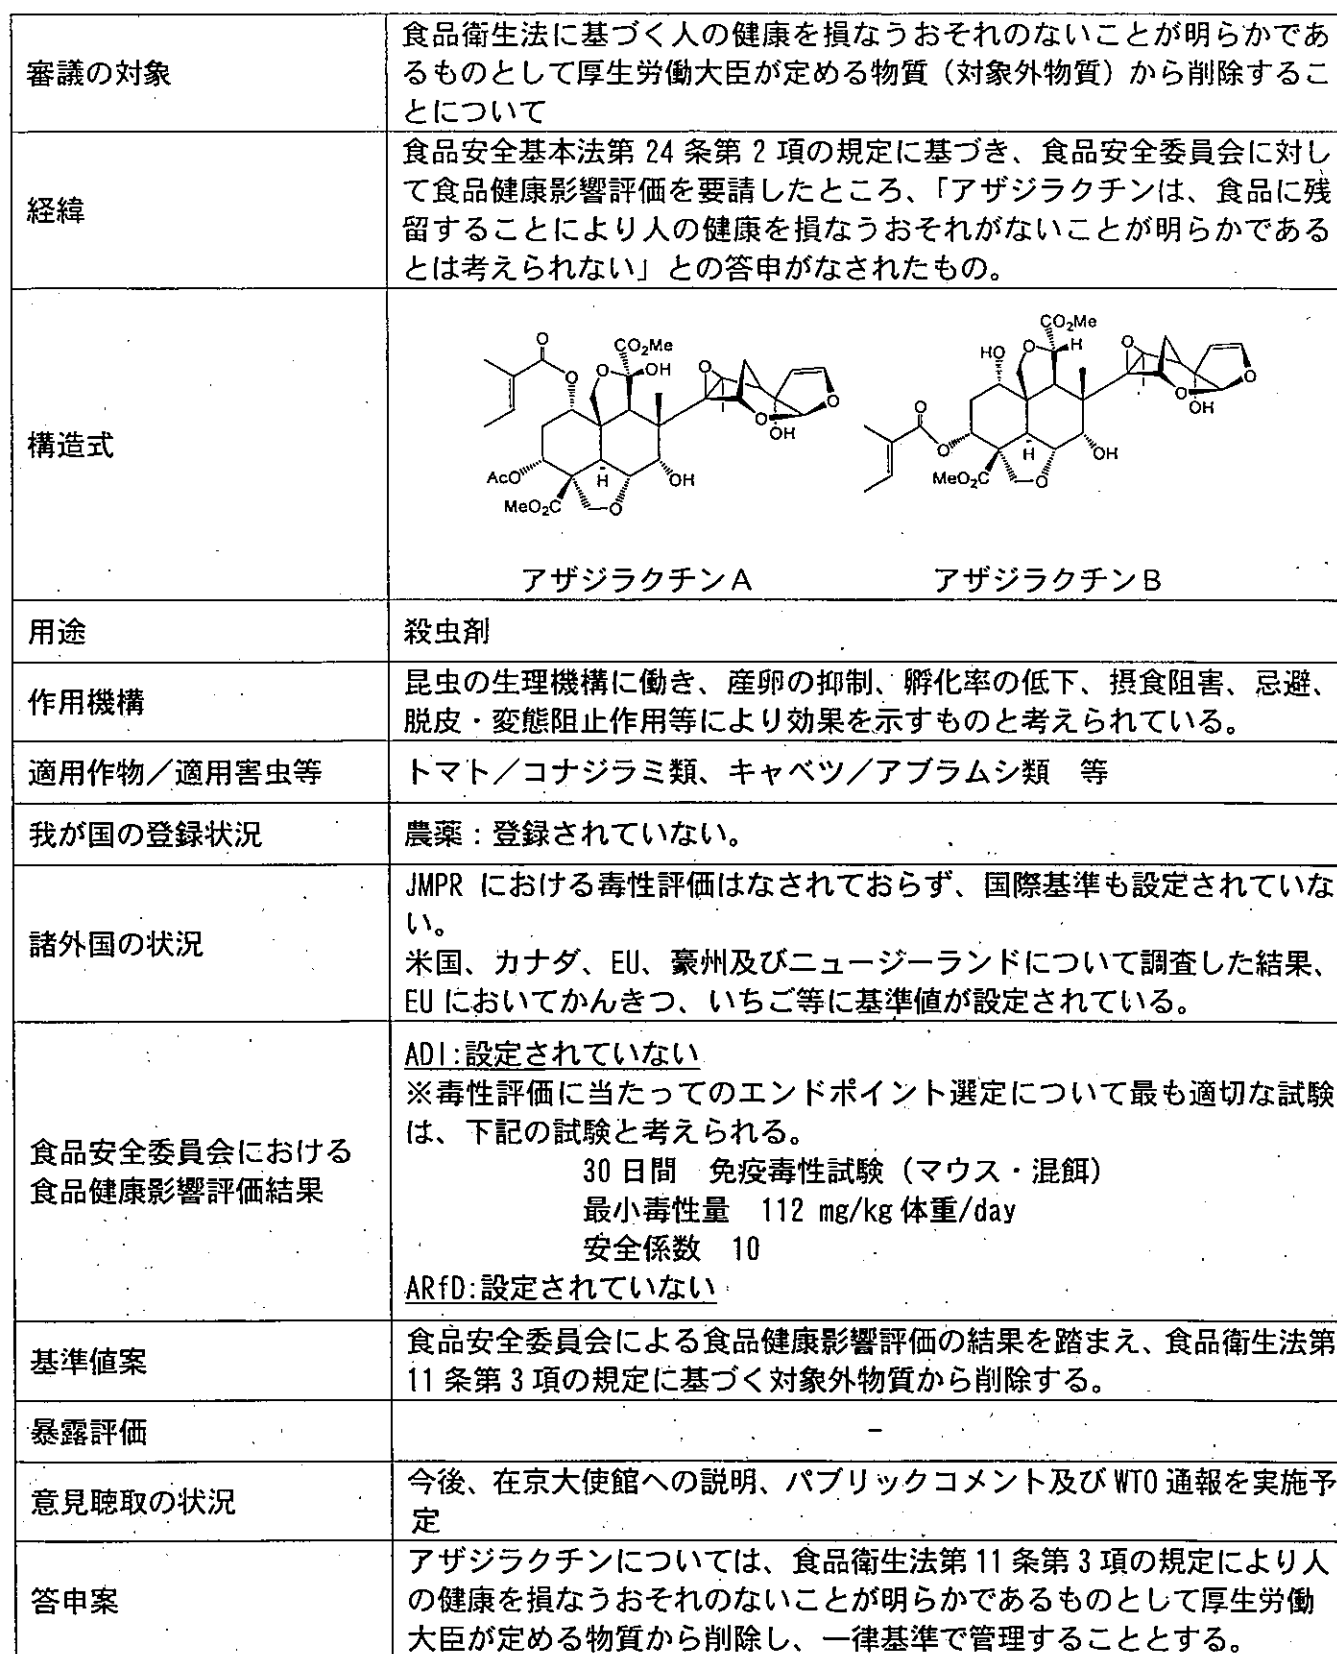 審議の対象
食品衛生法に基づく人の健康を損なうおそれのないことが明らかであ
るものとして厚生労働大臣が定める物質（対象外物質）から削除するこ
とについて
経緯
食品安全基本法第 24 条第 2 項の規定に基づき、食品安全委員会に対し
て食品健康影響評価を要請したところ、「アザジラクチンは、食品に残
留することにより人の健康を損なうおそれがないことが明らかである
とは考えられない」との答申がなされたもの。
構造式
O
O
CO₂Me
O
OH
O
O
O
OH
AcO
H
OH
MeO₂C
O
アザジラクチンA
CO₂Me
HO
O
H
O
O
O
OH
O
O
H
OH
MeO₂C
O
アザジラクチンB
用途
殺虫剤
作用機構
昆虫の生理機構に働き、産卵の抑制、孵化率の低下、摂食阻害、忌避、
脱皮・変態阻止作用等により効果を示すものと考えられている。
適用作物／適用害虫等
トマト／コナジラミ類、キャベツ／アブラムシ類　等
我が国の登録状況
農薬：登録されていない。
諸外国の状況
JMPR における毒性評価はなされておらず、国際基準も設定されていな
い。
米国、カナダ、EU、豪州及びニュージーランドについて調査した結果、
EU においてかんきつ、いちご等に基準値が設定されている。
食品安全委員会における
食品健康影響評価結果
ADI:設定されていない
※毒性評価に当たってのエンドポイント選定について最も適切な試験
は、下記の試験と考えられる。
30 日間　免疫毒性試験（マウス・混餌）
最小毒性量　112 mg/kg 体重/day
安全係数　10
ARfD:設定されていない
基準値案
食品安全委員会による食品健康影響評価の結果を踏まえ、食品衛生法第
11 条第 3 項の規定に基づく対象外物質から削除する。
暴露評価
－
意見聴取の状況
今後、在京大使館への説明、パブリックコメント及び WTO 通報を実施予
定
答申案
アザジラクチンについては、食品衛生法第 11 条第 3 項の規定により人
の健康を損なうおそれのないことが明らかであるものとして厚生労働
大臣が定める物質から削除し、一律基準で管理することとする。